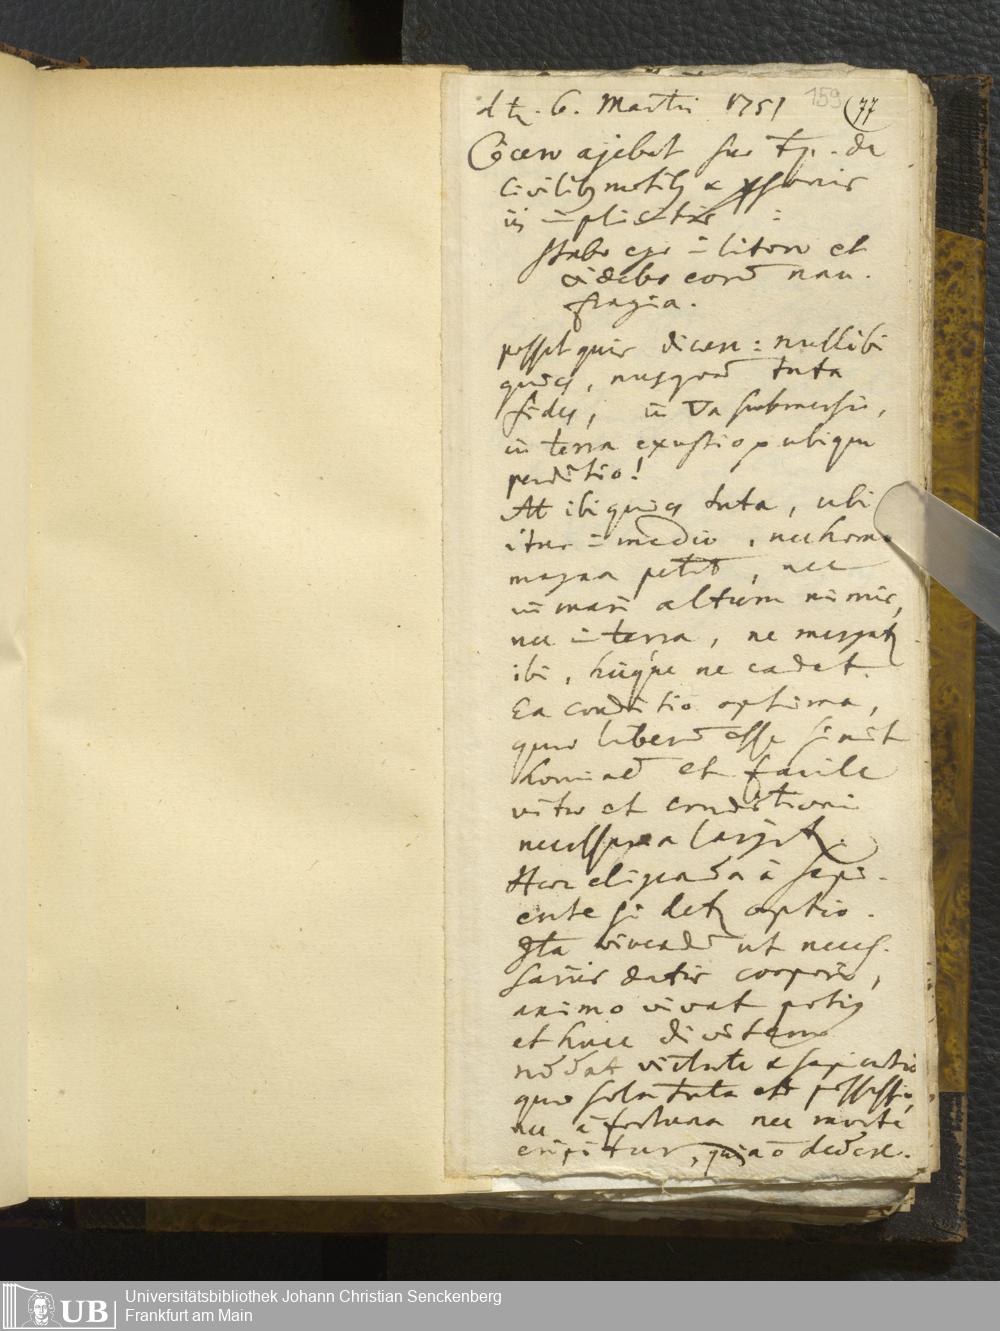 d. 6. Martii 1751 159 (77
Cicero ajebat suo
civilib motib &
implicatis :
Stabo ego in litore et
videbo eorū nau.
fragia.
posset quis dicere: nullibi
quies, nusquam tuta
fides, in submersio,
in terra exustio ubique
perditio!
At ibi quies tuta, ubi
itur in medio, nec
magna petit, nec
in mari altum nimis,
nec in terra, ne mergat
ibi, ne cadat.
Ea conditio optima,
quae liberū esse sinit
hominē et facile
victu et
necessaria largit.
Haec eligenda à sapi-
ente si det optio.
Ita vivendū ut neces-
sariis datis corpori,
animo vivat
et hunc divitem
reddat virtute & sapientia
quae sola tuta est possessio,
nec à fortuna nec morte
eripitur,
UB Universitätsbibliothek Johann Christian Senckenberg
Frankfurt am Main